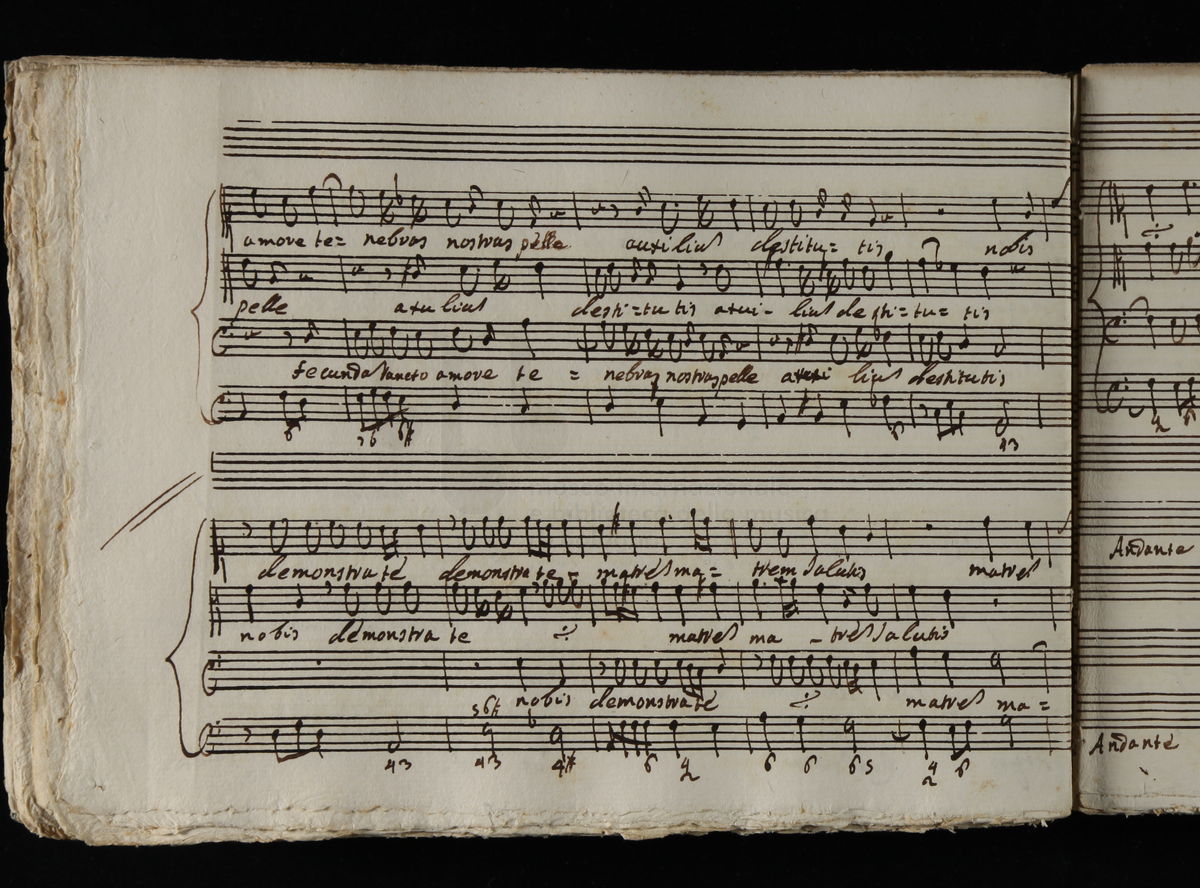 amore te= nebras nostras pelle auxilius destitu= tis nobis
pelle auxilius desti=tutis auxi- lius desti=tu= tis
fecunda sancto amore te = nebras nostras pelle auxi lius destitutis
6 6#
43
demonstrate demonstrate= matres ma= trem salutis matres
nobis demonstra te matres ma -tres salutis
56# nobis demonstrate matres ma=
6
43 43 4# 6 4 2 6 6 65 4 2 6
Andante
Andante